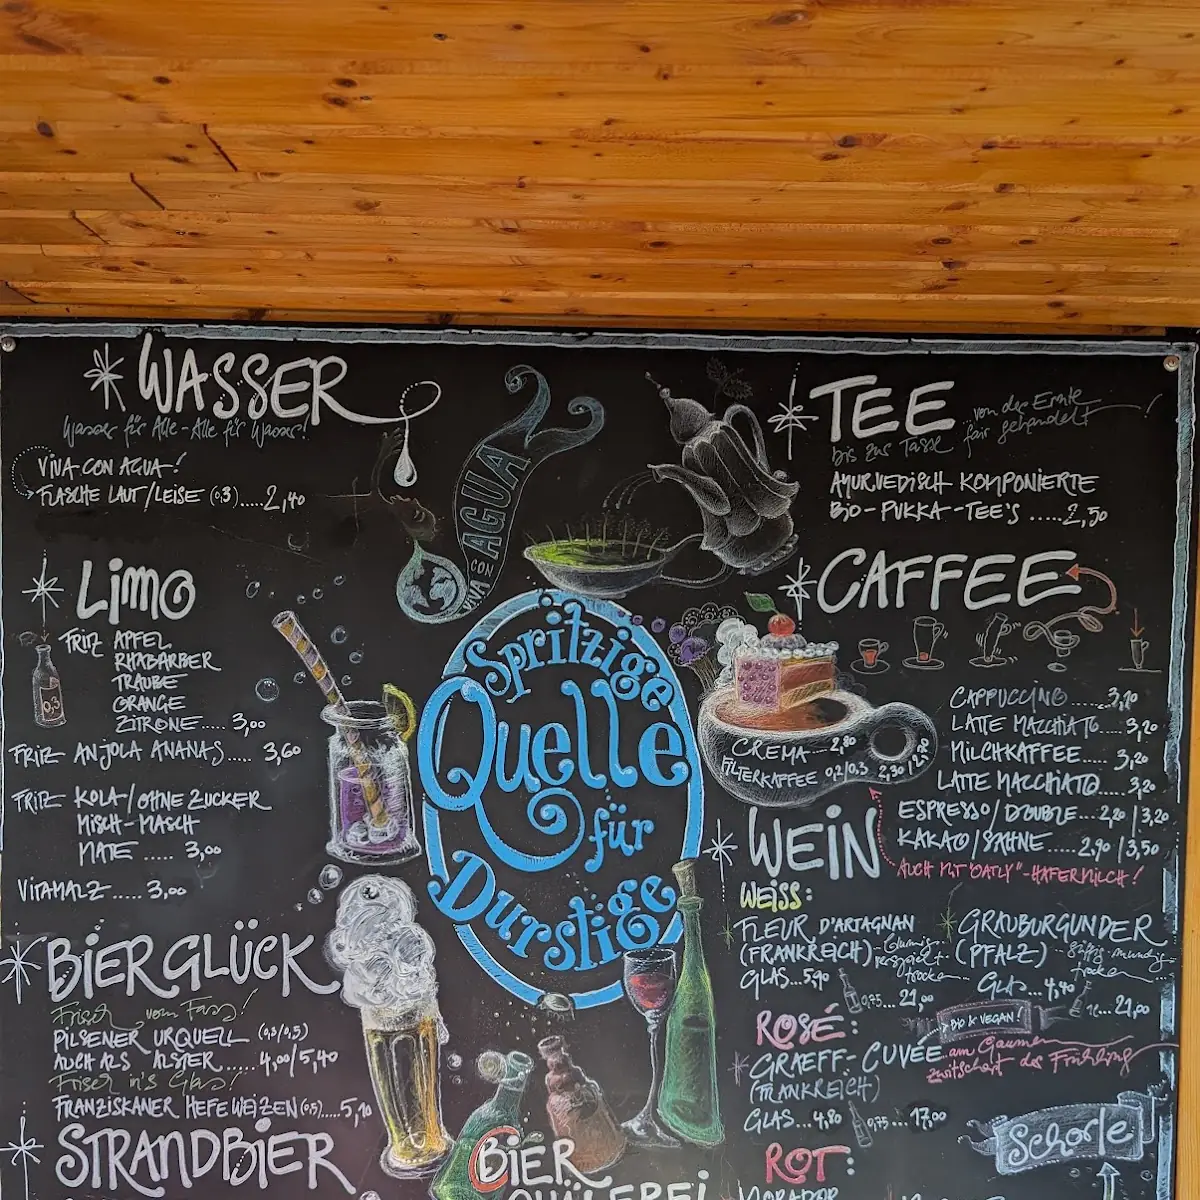 WASSER
Wasser für Alle - Alle für Wasser!
VIVA CON AGUA!
FLASCHE LAUT/LEISE (0,3).....2,40
LIMO
FRITZ APFEL
RHABARBER
TRAUBE
ORANGE
ZITRONE.... 3,00
0,3
FRITZ ANJOLA ANANAS..... 3,60
FRITZ KOLA-/OHNE ZUCKER
MISCH-MASCH
MATE ..... 3,00
VITAMALZ ..... 3,00
BIERGLÜCK
Frisch vom Fass!
PILSENER URQUELL (0,3/0,5)
AUCH ALS ALSTER.... 4,00/5,40
Frisch in's Glas!
FRANZISKANER HEFEWEIZEN (0,5).....5,10
STRANDBIER
VIVA CON AGUA
Spritzige
Quelle
für
Durstige
BIER
QUÄLEREI
TEE
von der Ernte
bis zur Tasse fair gehandelt!
AYURVEDISCH KOMPONIERTE
BIO-PUKKA-TEE'S .....2,50
CAFFEE
CAPPUCCINO.....3,20
LATTE MACCHIATO....3,20
MILCHKAFFEE.....3,20
LATTE MACCHIATO.....3,20
ESPRESSO/DOUBLE...2,20 | 3,20
KAKAO/SAHNE.....2,90 | 3,50
AUCH MIT "OATLY"-HAFERMILCH!
CREMA....2,80
FILTERKAFFEE 0,2/0,3 2,30 | 2,70
WEIN
WEISS:
FLEUR D'ARTAGNAN
(FRANKREICH)
trocken
GLAS...5,90
0,75... 21,00
GRAUBURGUNDER
(PFALZ)
trocken
GLAS...4,40
1L...21,00
ROSÉ:
BIO & VEGAN!
GRAEFF-CUVÉE
(FRANKREICH)
am Gaumen
zwitschert der Frühling
GLAS...4,80
0,75... 17,00
Schorle
ROT: